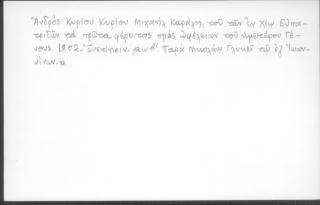 Ἀνδρὸς Κυρίου Κυρίου Μιχαὴλ Καράλη, τοῦ τῶν ἐν Χίῳ Εὐπα-
τριδῶν τὰ πρῶτα φέροντος πρὸς ὠφέλειαν τοῦ ἡμετέρου Γέ-
νους. 1802. Ἐνετίησιν. ͵αωβʹ. Παρὰ Νικολάῳ Γλυκεῖ τῷ ἐξ Ἰωαν-
νίνων.